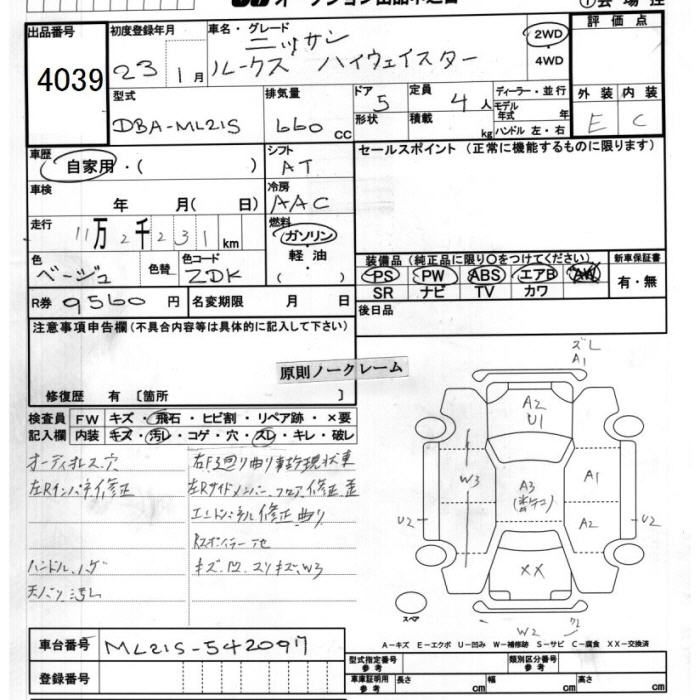 出品番号
4039
初度登録年月
23 1月
車名・グレード
ニッサン
ルークス ハイウェイスター
2WD
・
4WD
評価点
外装 内装
E C
型式
DBA-ML21S
排気量
660 cc
ドア 5
形状
定員 4人
積載 kg
ディーラー・並行
モデル
年式 年
ハンドル 左・右
車歴
自家用・( )
シフト
AT
セールスポイント(正常に機能するものに限ります)
車検
年 月( 日)
冷房
AAC
走行
11万2千231km
燃料
ガソリン・
軽油・
( )
色
ベージュ
色替
色コード
ZDK
装備品(純正品に限り○をつけてください)
新車保証書
PS PW ABS エアB AW
SR ナビ TV カワ
有・無
R券 9560円
名変期限 月 日
後日品
注意事項申告欄(不具合内容等は具体的に記入して下さい)
原則ノークレーム
修復歴 有〔箇所 〕
検査員
記入欄
FW キズ・飛石・ヒビ割・リペア跡・×要
内装 キズ・汚レ・コゲ・穴・スレ・キレ・破レ
オーディオレス穴
左Rインパネ修正
ハンドルハゲ
天バリ汚レ
右F廻り曲り事故現状車
左Rサイドメンバー、フロア修正歪
エンドパネル修正曲り
キズ、凹、スリキズ、W3
ズレ
A1
A2
U1
W3
A3
A1
A2
U2
U2
XX
W2
スペア
A-キズ E-エクボ U-凹み W-補修跡 S-サビ C-腐食 XX-交換済
車台番号 ML21S-542097
登録番号
型式指定番号
参考
類別区分番号
参考
車庫証明用
参考
長さ cm
幅 cm
高さ cm